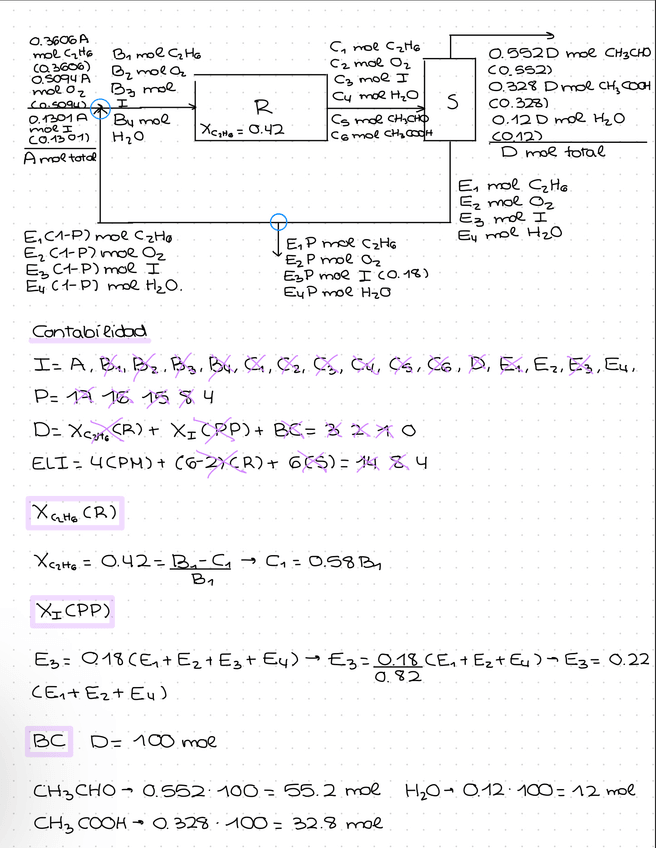 0.3606A
mol C₂H₆
(0.3606)
0.5094A
mol O₂
(0.5094)
0.1301A
mol I
(0.1301)
A mol total
B₁ mol C₂H₆
B₂ mol O₂
B₃ mol
I
B₄ mol
H₂O
R
X C₂H₆ = 0.42
C₁ mol C₂H₆
C₂ mol O₂
C₃ mol I
C₄ mol H₂O
C₅ mol CH₃CHO
C₆ mol CH₃COOH
S
0.552D mol CH₃CHO
(0.552)
0.328 D mol CH₃COOH
(0.328)
0.12 D mol H₂O
(0.12)
D mol total
E₁ mol C₂H₆
E₂ mol O₂
E₃ mol I
E₄ mol H₂O
E₁(1-P) mol C₂H₆
E₂(1-P) mol O₂
E₃(1-P) mol I
E₄(1-P) mol H₂O.
E₁P mol C₂H₆
E₂P mol O₂
E₃P mol I (0.18)
E₄P mol H₂O
Contabilidad
I = A, B₁, B₂, B₃, B₄, C₁, C₂, C₃, C₄, C₅, C₆, D, E₁, E₂, E₃, E₄,
P = 17 16 15 8 4
D = X C₂H₆ (R) + X I (PP) + BC = 3 2 1 0
ELI = 4(PM) + (6-2)(R) + 6(S) = 14 8 4
X C₂H₆ (R)
X C₂H₆ = 0.42 = B₁-C₁ → C₁ = 0.58 B₁
B₁
X I (PP)
E₃ = 0.18(E₁+E₂+E₃+E₄) → E₃ = 0.18 (E₁+E₂+E₄) → E₃ = 0.22
0.82
(E₁+E₂+E₄)
BC D = 100 mol
CH₃CHO → 0.552·100 = 55.2 mol H₂O → 0.12·100 = 12 mol
CH₃COOH → 0.328·100 = 32.8 mol